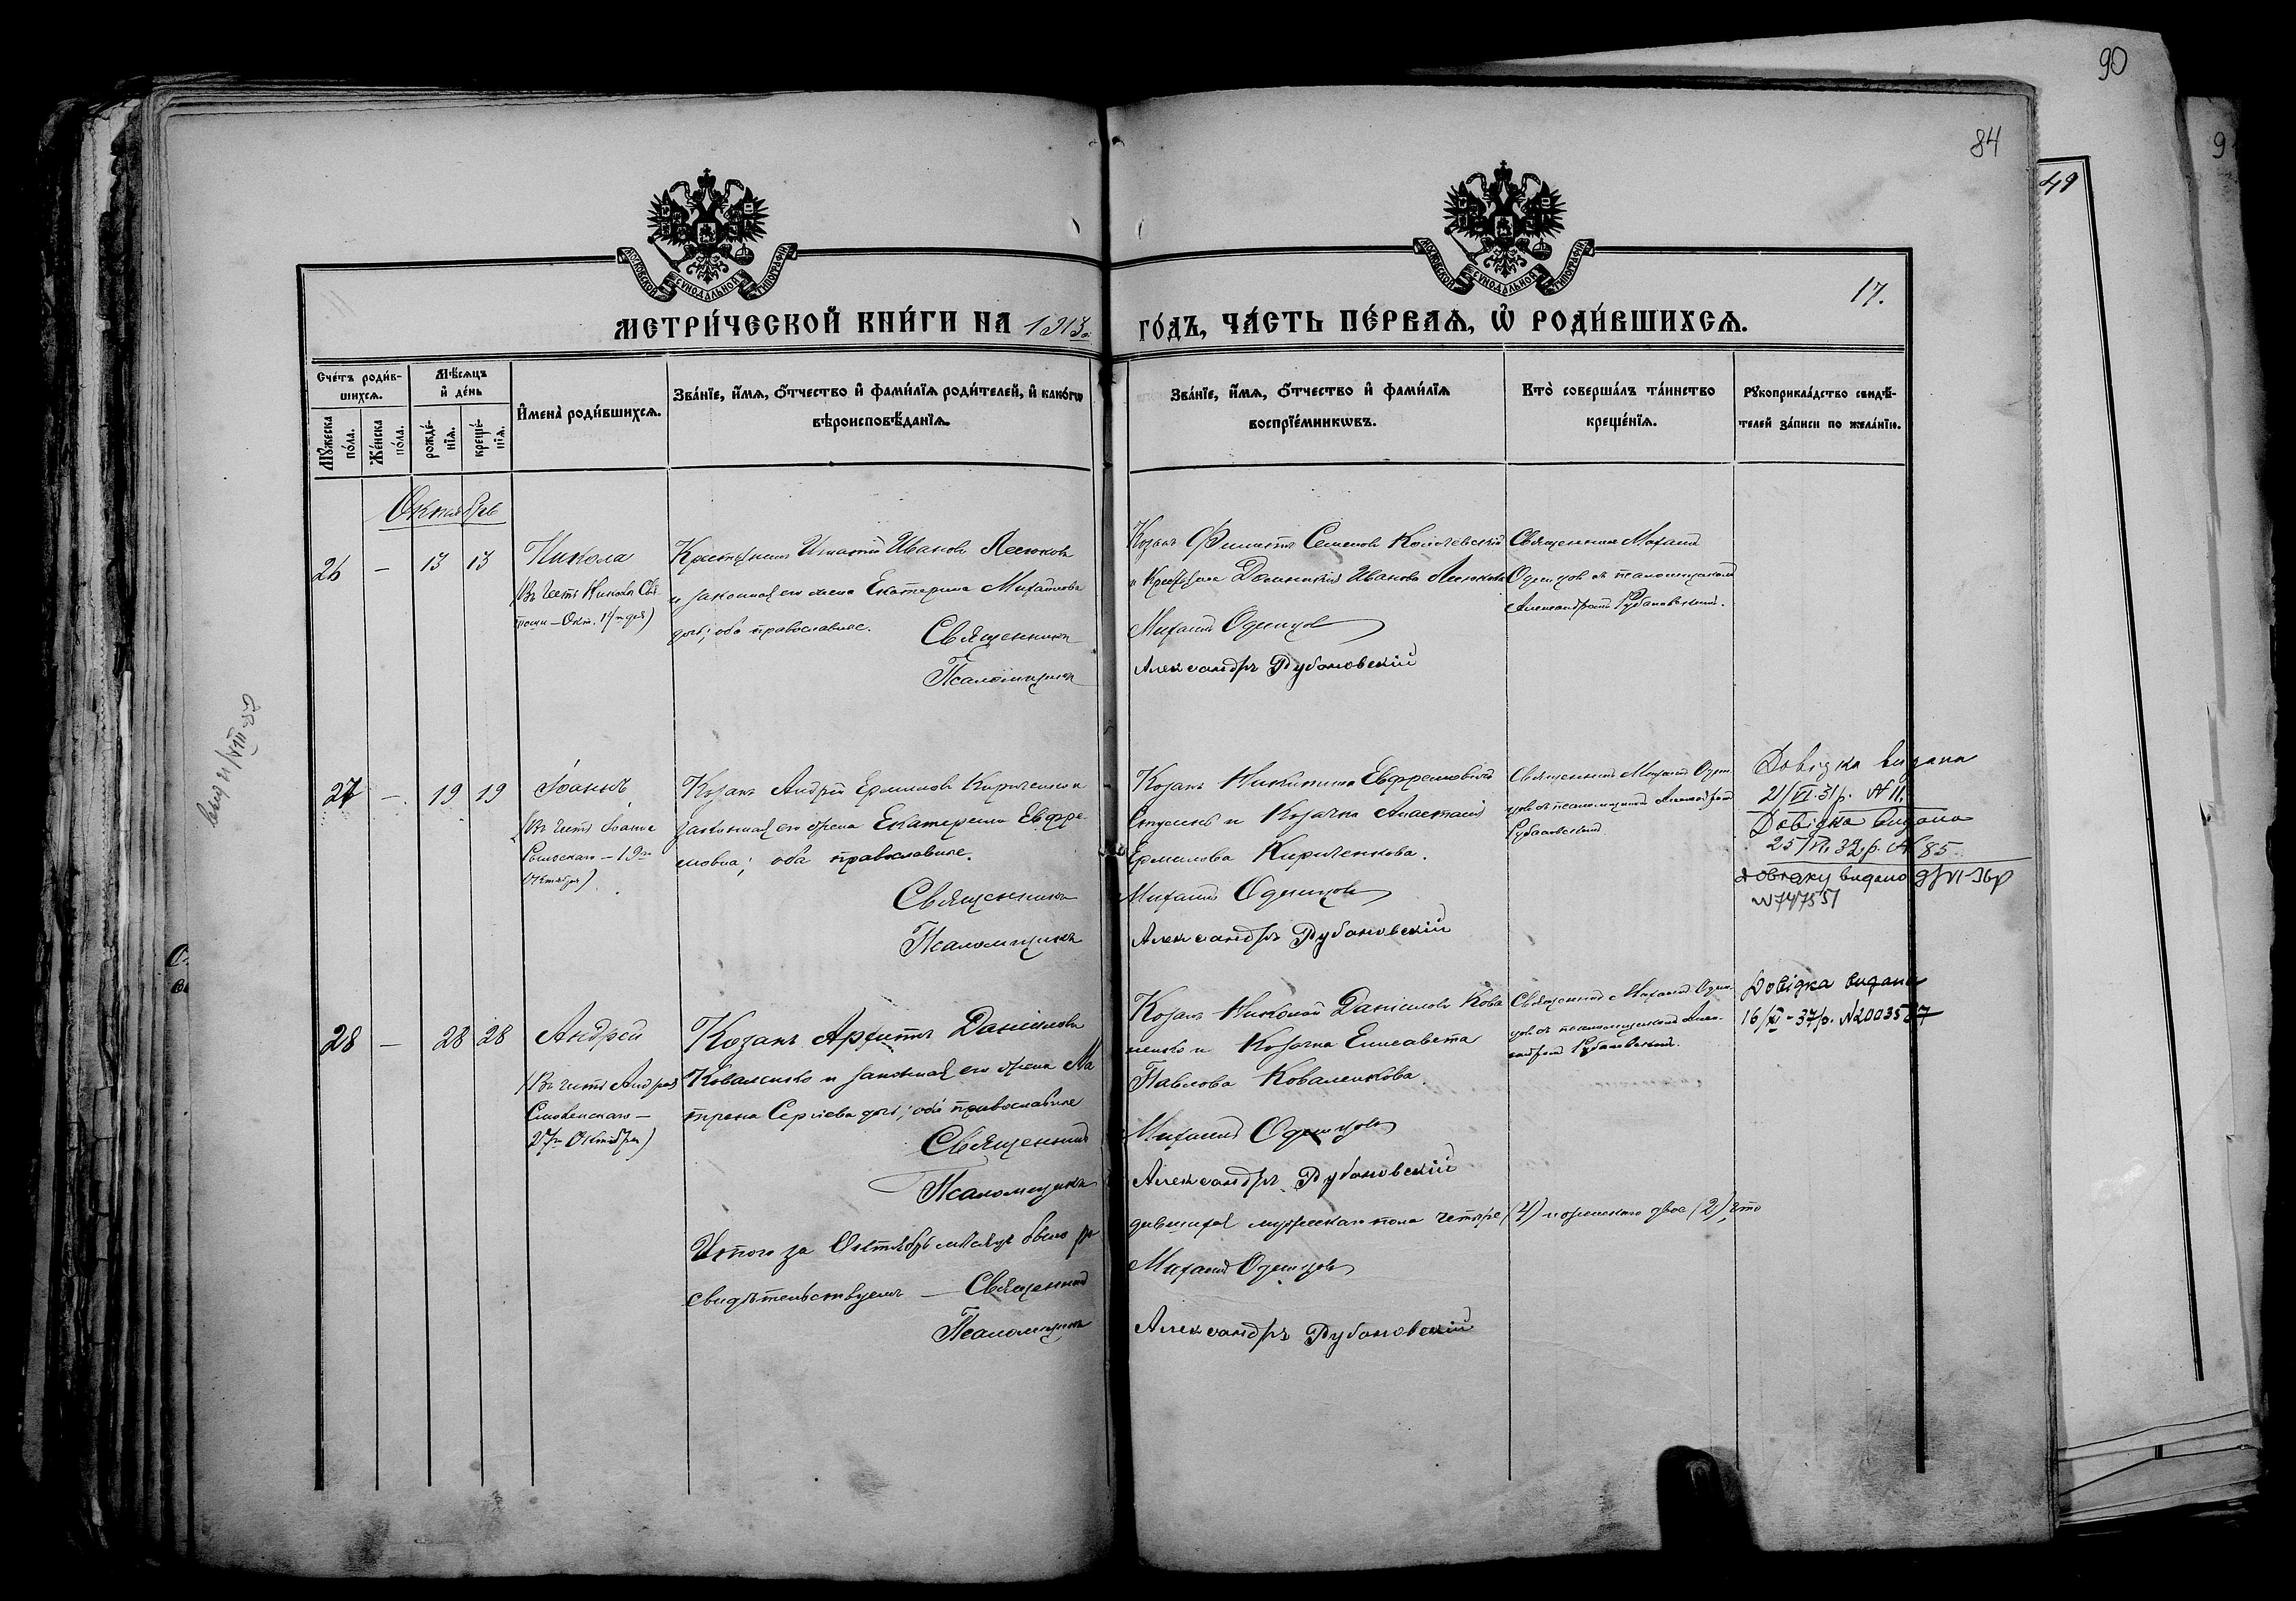 90
84
49
9
17.
МОСКОВСКОЙ СѴНОДАЛЬНОЙ ТИПОГРАФІИ
МОСКОВСКОЙ СѴНОДАЛЬНОЙ ТИПОГРАФІИ
МЕТРИ́ЧЕСКОЙ КНИ́ГИ НА 1913
ГО́ДЪ, ЧА́СТЬ ПЕ́РВАѦ, Ѡ҆ РОДИ́ВШИХСѦ.
Сче́тъ роди́в-
шихсѧ.
Мѣ́сѧцъ
и҆ де́нь
Мꙋ́жеска
по́ла.
Же́нска
по́ла.
рожде́-
нїѧ.
креще́-
нїѧ.
И҆мена̀ роди́вшихсѧ.
Зва́нїе, и҆́мѧ, ѻ҆́тчество и҆ фами́лїѧ роди́телей, и҆ како́гѡ
вѣроисповѣ́данїѧ.
Зва́нїе, и҆́мѧ, ѻ҆́тчество и҆ фами́лїѧ
воспрїе́мникѡвъ.
Кто̀ соверша́лъ та́инство
креще́нїѧ.
Рꙋкоприкла́дство свидѣ́-
телей за́писи по жела́нїю.
Октябрь
26 — 13 13 Никола
(Въ честь Николы Свя-
тоши – Окт. 14 дня)
Иванов Лесюков
и законная его жена Екатерина Михайлова
оба православные.
Священникъ
Псаломщикъ
Козакъ Филиппъ Семенов
Иванова
Михаилъ Одинцовъ
Александръ Рубановскій
Священникъ Михаилъ
Одинцовъ съ псаломщикомъ
Александромъ Рубановскимъ.
27 — 19 19 Іоаннъ
(Въ честь Іоанна
Рыльскаго – 19го
Октября)
Козакъ Андрей Ермилов Кириченко и
законная его жена Екатерина Евфре-
мовна; оба православные.
Священникъ
Псаломщикъ
Козакъ Никита Евфремовичъ
и Козачка Анастасія
Ермилова Кириченкова.
Михаилъ Одинцовъ
Александръ Рубановскій
Священникъ Михаилъ Один-
цовъ съ псаломщикомъ Александромъ
Рубановскимъ
Довідка видана
21/VI 31р. N 11.
Довідка видана
25/VI 32р. N 85
Довідку видано 9/VI-36р
N 747551
28 — 28 28 Андрей
(Въ честь Андрея
Смоленскаго –
27го Октября)
Козакъ Архиппъ Даніилов
Коваленко и законная его жена Ма-
трона Сергіева дочь; оба православные
Священникъ
Псаломщикъ
Козакъ Николай Даніилов Кова-
ленко и Козачка Елисавета
Павлова Коваленкова.
Михаилъ Одинцовъ
Александръ Рубановскій
Священникъ Михаилъ Один-
цовъ съ псаломщикомъ Алек-
сандромъ Рубановскимъ.
Довідка видана
16/XI-37р. N 2003587
Итого за Октябрь мѣсяцъ было ро-
дившихся мужескаго пола четыре (4) и женскаго двое (2), что
свидѣтельствуемъ — Священникъ
Михаилъ Одинцовъ
Псаломщикъ
Александръ Рубановскій